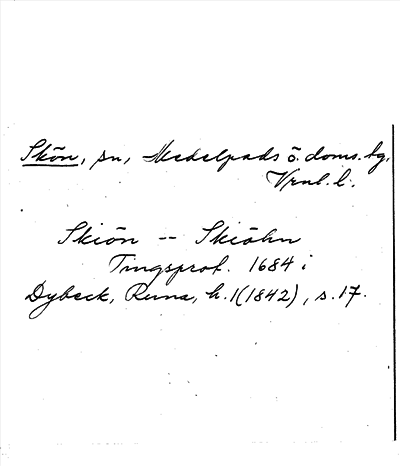 Skön, sn, Medelpads ö. doms. tg,
Vrnl. l.
Skiön -- Skiöhn
Tingsprot. 1684 i
Dybeck, Runa, h. 1(1842), s. 17.